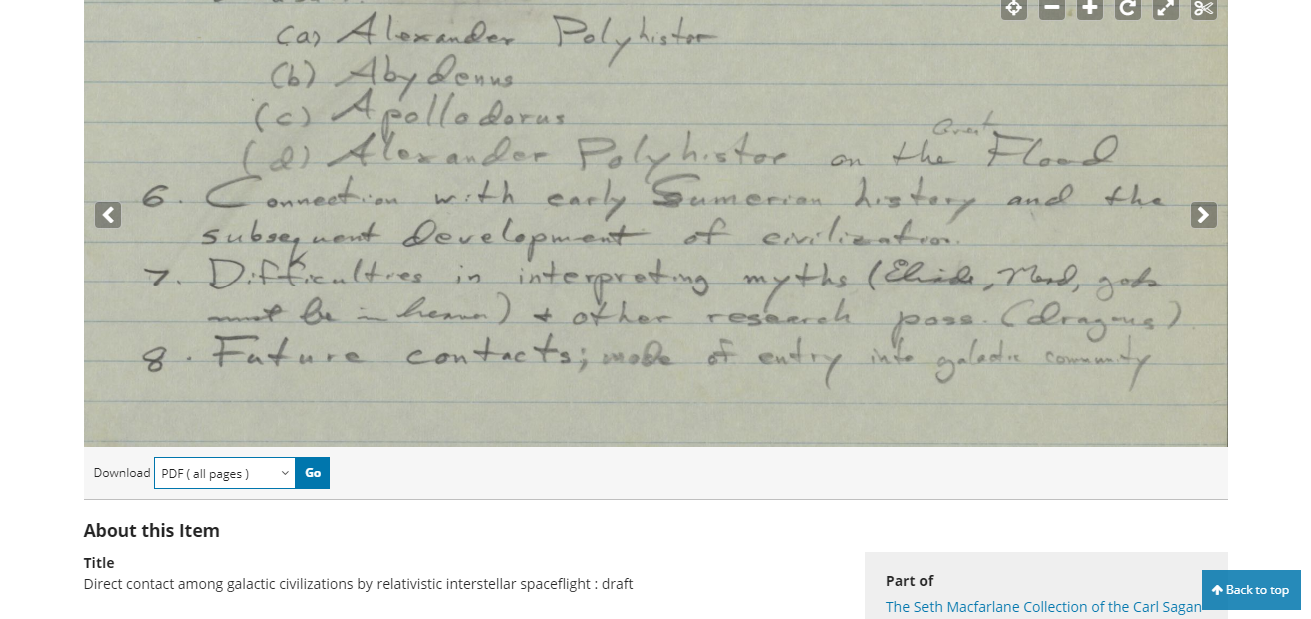 (a) Alexander Polyhistor
(b) Abydenus
(c) Apollodorus
(d) Alexander Polyhistor on the Great Flood
6. Connection with early Sumerian history and the
subsequent development of civilization.
7. Difficulties in interpreting myths (Eliade, Mead, gods
must be in heaven) + other research poss. (dragons)
8. Future contacts; mode of entry into galactic community
Download PDF ( all pages ) Go
About this Item
Title
Direct contact among galactic civilizations by relativistic interstellar spaceflight : draft
Part of
The Seth Macfarlane Collection of the Carl Sagan
Back to top